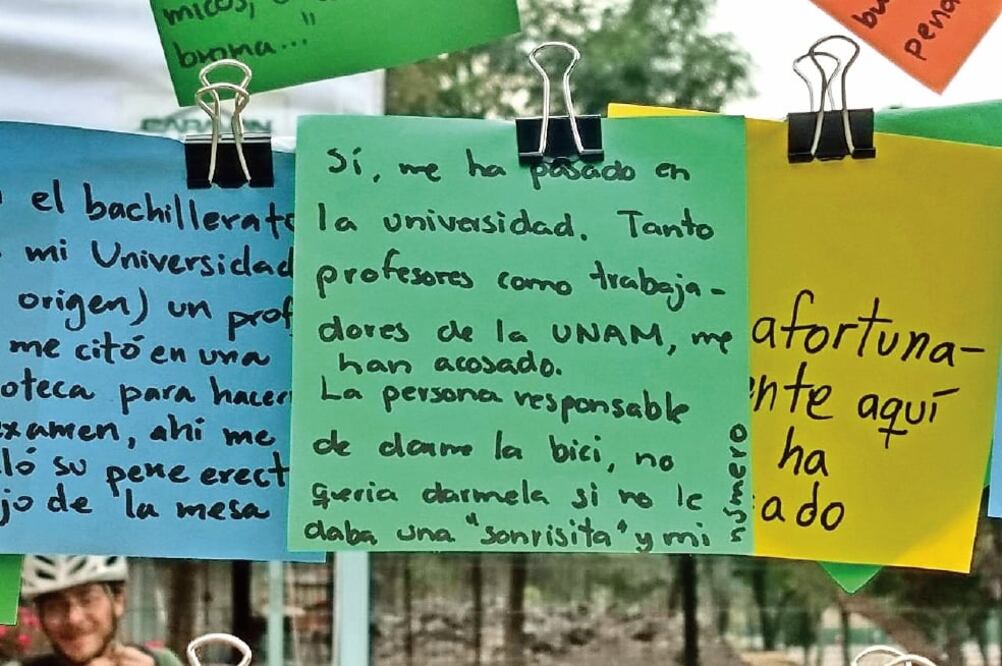 micos,
broma..."
bu
pena
el bachillerato
mi Universidad
origen) un prof
me citó en una
oteca para hacer
xamen, ahi me
ló su pene erect
jo de la mesa
Sí, me ha pasado en
la universidad. Tanto
profesores como trabaja-
dores de la UNAM, me
han acosado.
La persona responsable
de darme la bici, no
queria darmela si no le
daba una "sonrisita" y mi
número
afortuna-
nte aquí
ha
ado